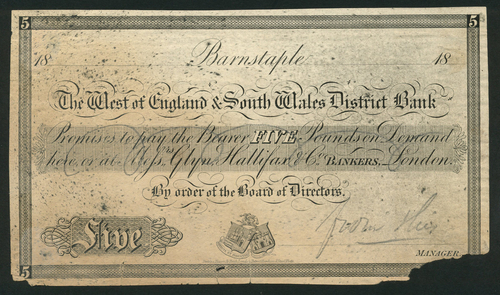 5 5
18 Barnstaple 18
The West of England & South Wales District Bank
Promises to pay the Bearer FIVE Pounds on Demand
here, or at Messrs. Glyn, Hallifax & Co. BANKERS, London.
By order of the Board of Directors.
Five
MANAGER
5